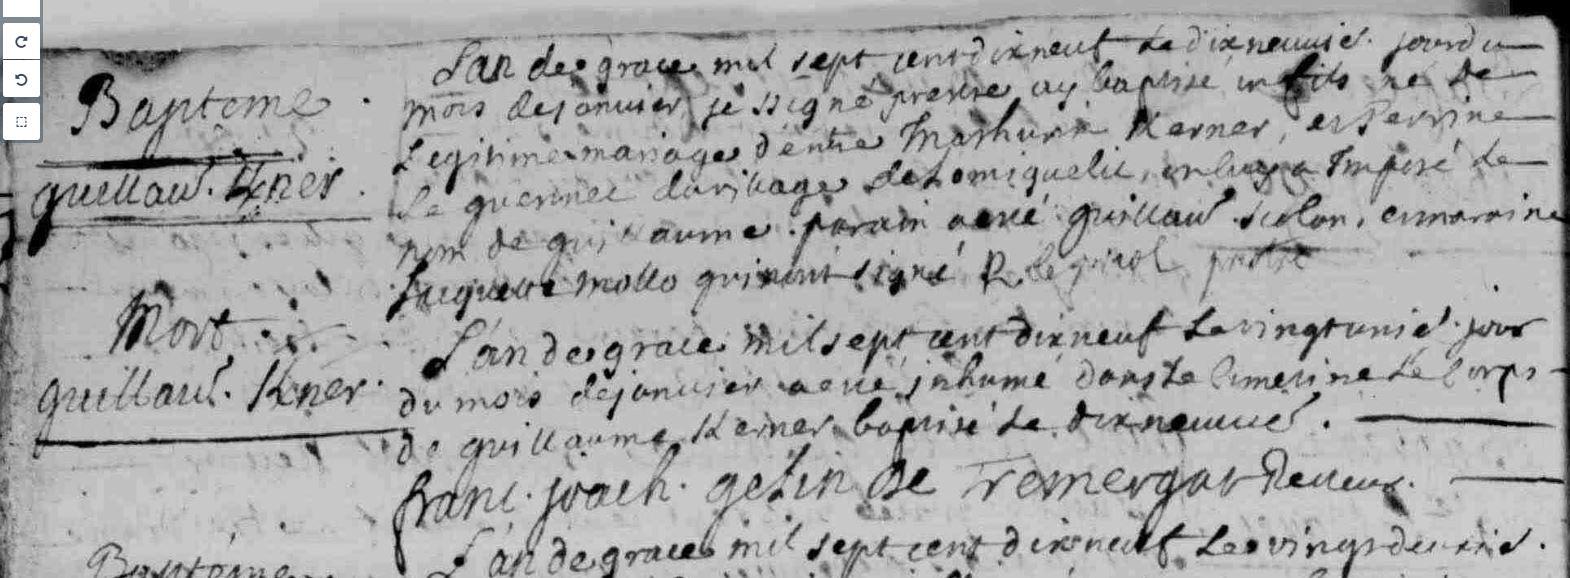 Bapteme
guillau. Kner
L'an de grace mil sept cent dixneuf le dixneuvie. jour du
mois de janvier je ssigné prestre ay baptisé un fils né de
Legitime mariage d'entre Mathurin Kerner, et Perrine
le guennec du village de Lomiquelic, on luy a Imposé le
nom de guillaume. parain a eté guillau. , et maraine
Jacquette mollo qui n'ont signé R. prestre
Mort
guillau. Kner
L'an de grace mil sept cent dixneuf le vingt unie. jour
du mois de janvier a eté inhumé dans le Cimetire le Corps
de guillaume Kerner baptisé le dixneuvie.
franc. joach. de Tremergat Recteur.
Bapteme
L'an de grace mil sept cent dixneuf le vingt deuxie.